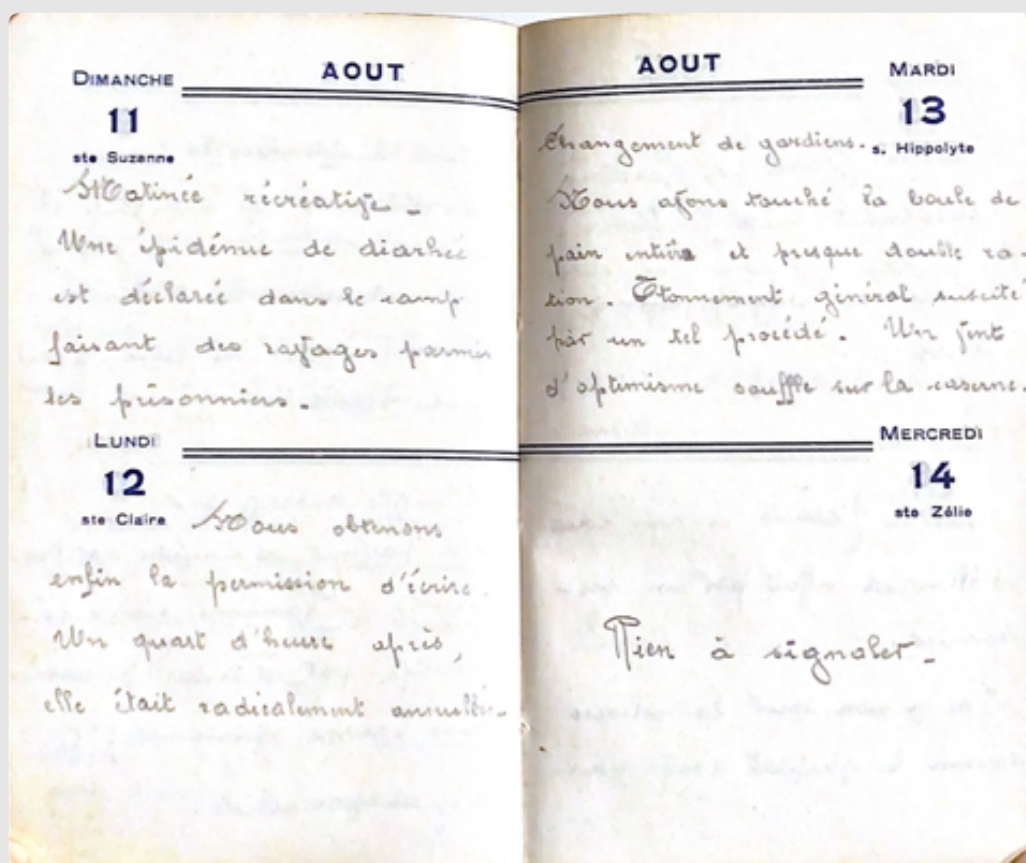 DIMANCHE
AOUT
11
ste Suzanne
Matinée récréative.
Une épidémie de diarhée
est déclarée dans le camp
faisant des ravages parmis
les prisonniers.
LUNDI
12
ste Claire
Nous obtenons
enfin la permission d'écrire.
Un quart d'heure après,
elle était radicalement annulée.
AOUT
MARDI
13
s. Hippolyte
Changement de gardiens.
Nous avons touché la boule de
pain entière et presque double ra-
tion. Etonnement général suscité
par un tel procédé. Un vent
d'optimisme souffle sur la caserne.
MERCREDI
14
ste Zélie
Rien à signaler.